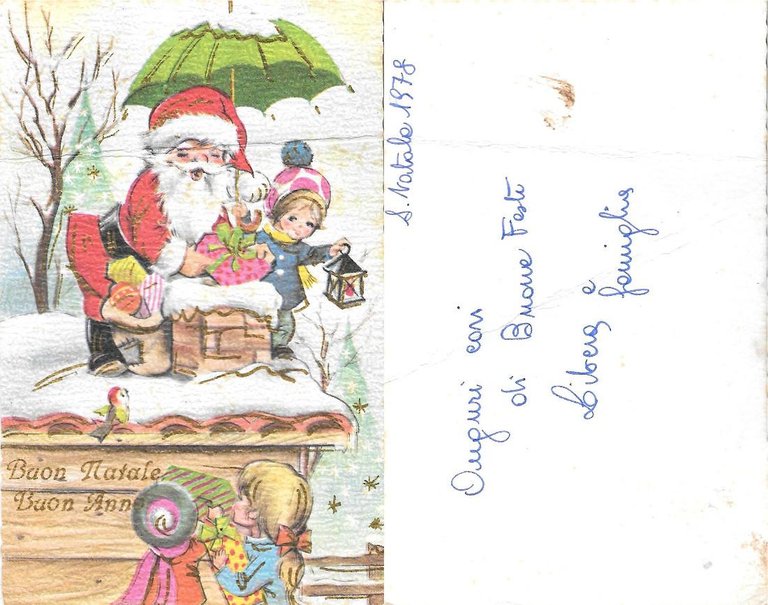 Buon Natale
Buon Anno
S. Natale 1978
Auguri cari
di Buone Feste
Libera e
famiglia